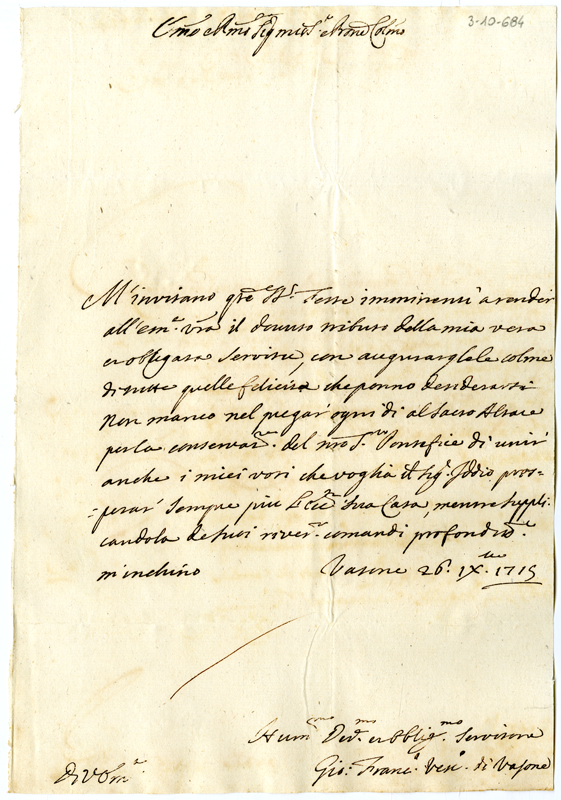 3-10-684
Em̃o e Rm̃o Sig.r mio Sig.r e Prone Colm̃o
M'invitano q̃ste SS.e Feste imminenti à render
all'Em.a Vr̃a il dovuto tributo della mia vera
et obligata servitù, con augurargliele colme
di tutte quelle felicità che ponno desiderarsi
Non manco nel pregar' ogni dì al Sacro Altare
per la conservaz.ne del nr̃o S.mo Pontefice di unir'
anche i miei voti che voglia il Sig.r Iddio pros=
=perar' sempre più l'Ecc.ma Sua Casa, mentre suppli-
candola de suoi river.mi comandi profondiss.te
m'inchino Vasone 26. IX.bre 1715
Hum.mo Dev.mo et Oblig.mo Servitore
Gio: Franc.o Vesc.o di Vasone
Di V. Em.a